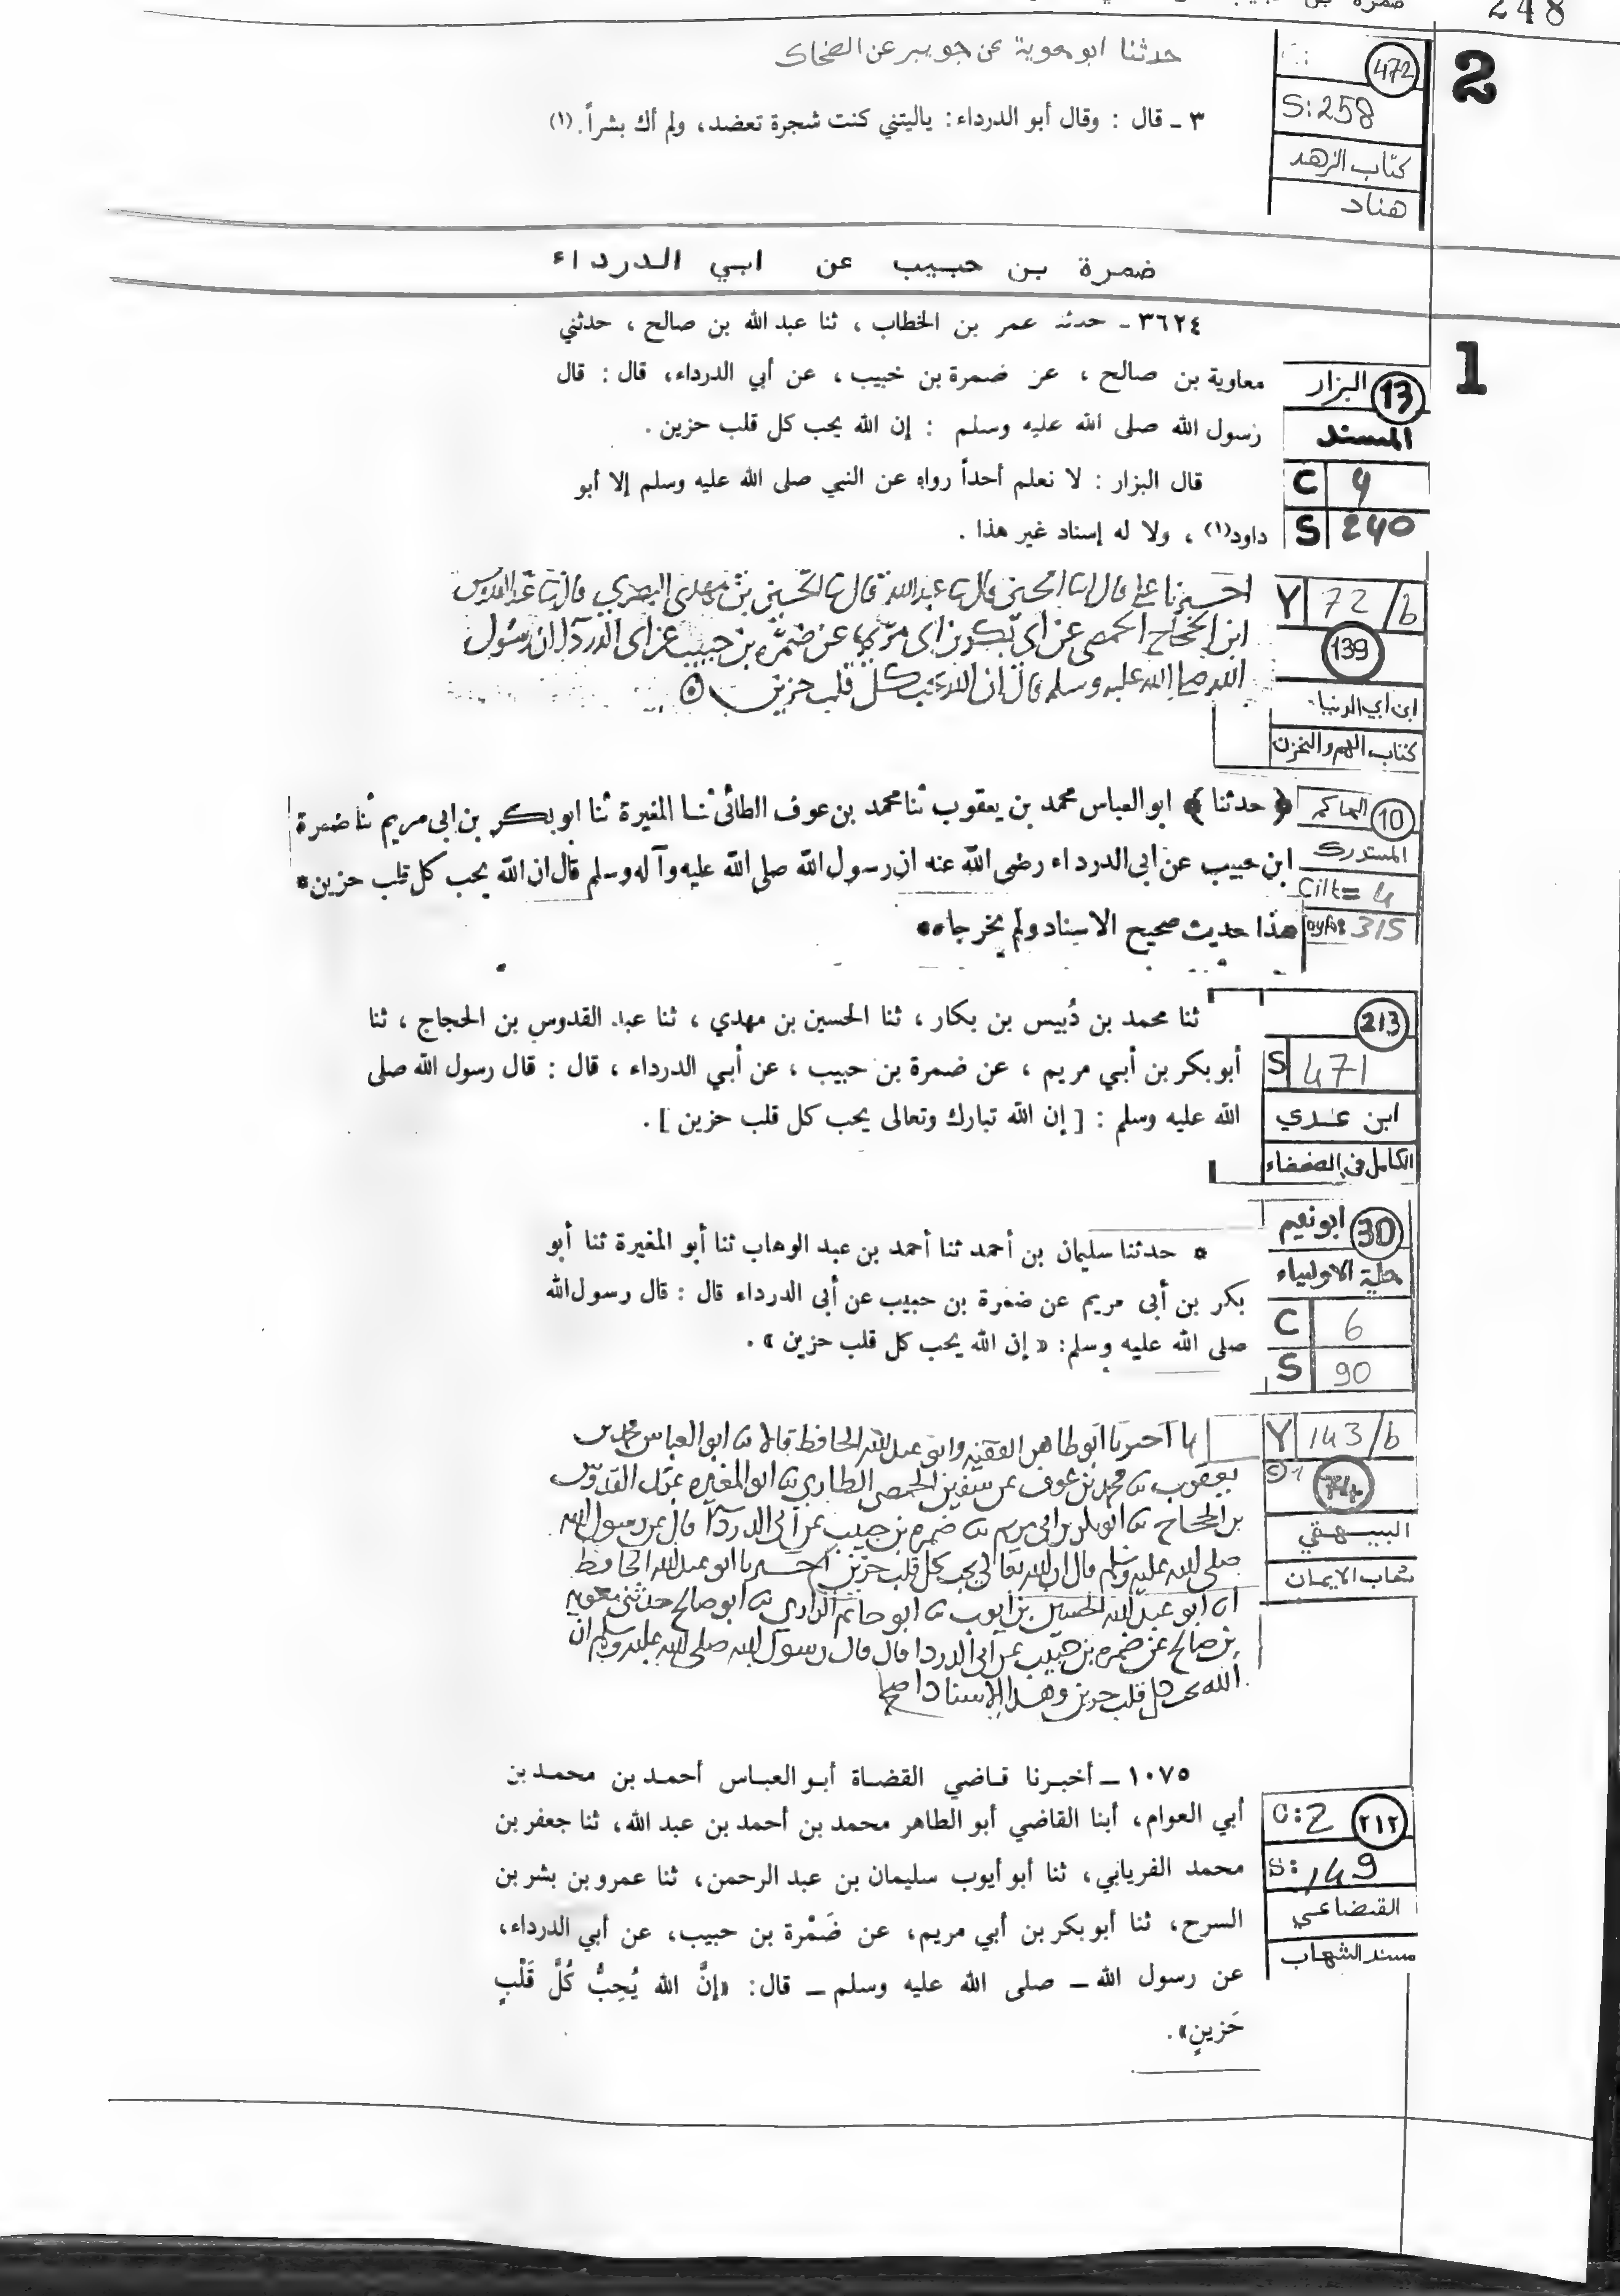 248
2
472
S:258
كتاب الزهد
هناد
حدثنا ابو معوية عن جويبر عن الضحاك
٣ ـ قال : وقال أبو الدرداء: ياليتني كنت شجرة تعضد، ولم أك بشراً.(١)
ضمرة بن حبيب عن ابي الدرداء
1
13 البزار
المسند
C 4
S 240
٣٦٢٤ ـ حدثنا عمر بن الخطاب ، ثنا عبد الله بن صالح ، حدثني
معاوية بن صالح ، عن ضمرة بن خبيب ، عن أبي الدرداء، قال : قال
رسول الله صلى الله عليه وسلم : إن الله يحب كل قلب حزين .
قال البزار : لا نعلم أحداً رواه عن النبي صلى الله عليه وسلم إلا أبو
داود(١) ، ولا له إسناد غير هذا .
Y 72/b
139
ابن ابي الدنيا
كتاب الهم والحزن
عبد الله قال الحسين بن مهدي البصري قال عبد القدوس
ابن الحجاج الحمصي عن ابي بكر بن ابي مريم عن ضمرة بن حبيب عن ابي الدرداء ان رسول
الله صلى الله عليه وسلم قال ان الله يحب كل قلب حزين
10 الحاكم
المستدرك
Cilt= 4
315
﴿ حدثنا ﴾ ابو العباس محمد بن يعقوب ثنا محمد بن عوف الطائى ثنا المغيرة ثنا ابو بكر بن ابى مريم ثنا ضمرة
ابن حبيب عن ابى الدرداء رضى الله عنه ان رسول الله صلى الله عليه وآله وسلم قال ان الله يحب كل قلب حزين*
هذا حديث صحيح الاسناد ولم يخرجاه*
213
S 471
ابن عدي
الكامل في الضعفاء
ثنا محمد بن دُبيس بن بكار ، ثنا الحسين بن مهدي ، ثنا عبد القدوس بن الحجاج ، ثنا
أبو بكر بن أبي مريم ، عن ضمرة بن حبيب ، عن أبي الدرداء ، قال : قال رسول الله صلى
الله عليه وسلم : [ إن الله تبارك وتعالى يحب كل قلب حزين ] .
30 ابو نعيم
حلية الاولياء
C 6
S 90
* حدثنا سليمان بن أحمد ثنا أحمد بن عبد الوهاب ثنا أبو المغيرة ثنا أبو
بكر بن أبى مريم عن ضمرة بن حبيب عن أبى الدرداء قال : قال رسول الله
صلى الله عليه وسلم: « إن الله يحب كل قلب حزين » .
Y 143/b
البيهقي
شعاب الايمان
ابو طاهر الفقيه وابو عبد الله الحافظ قالا ابو العباس محمد بن
يعقوب محمد بن عوف بن سفين الحمصي الطاري ابو المغيره عبد القدوس
بن الحجاج ابو بكر بن ابي مريم ضمره بن حبيب عن ابي الدردا قال عن رسول الله
صلى الله عليه وسلم قال ان الله تعالى يحب كل قلب حزين ابو عبد الله الحافظ
ابو عبد الله الحسين بن ايوب ابو حاتم الرازي ابو صالح حدثني معويه
بن صالح عن ضمره بن حبيب عن ابي الدردا قال قال رسول الله صلى الله عليه وسلم ان
الله يحب كل قلب حزين وهذا الاسناد اصح
C:2 ٢١٢
S:149
القضاعي
مسند الشهاب
١٠٧٥ ــ أخبرنا قاضي القضاة أبو العباس أحمد بن محمد بن
أبي العوام، أبنا القاضي أبو الطاهر محمد بن أحمد بن عبد الله، ثنا جعفر بن
محمد الفريابي، ثنا أبو أيوب سليمان بن عبد الرحمن، ثنا عمرو بن بشر بن
السرح، ثنا أبو بكر بن أبي مريم، عن ضَمْرة بن حبيب، عن أبي الدرداء،
عن رسول الله ــ صلى الله عليه وسلم ــ قال: «إنَّ الله يُحِبُّ كُلَّ قَلْبٍ
حَزينٍ» .